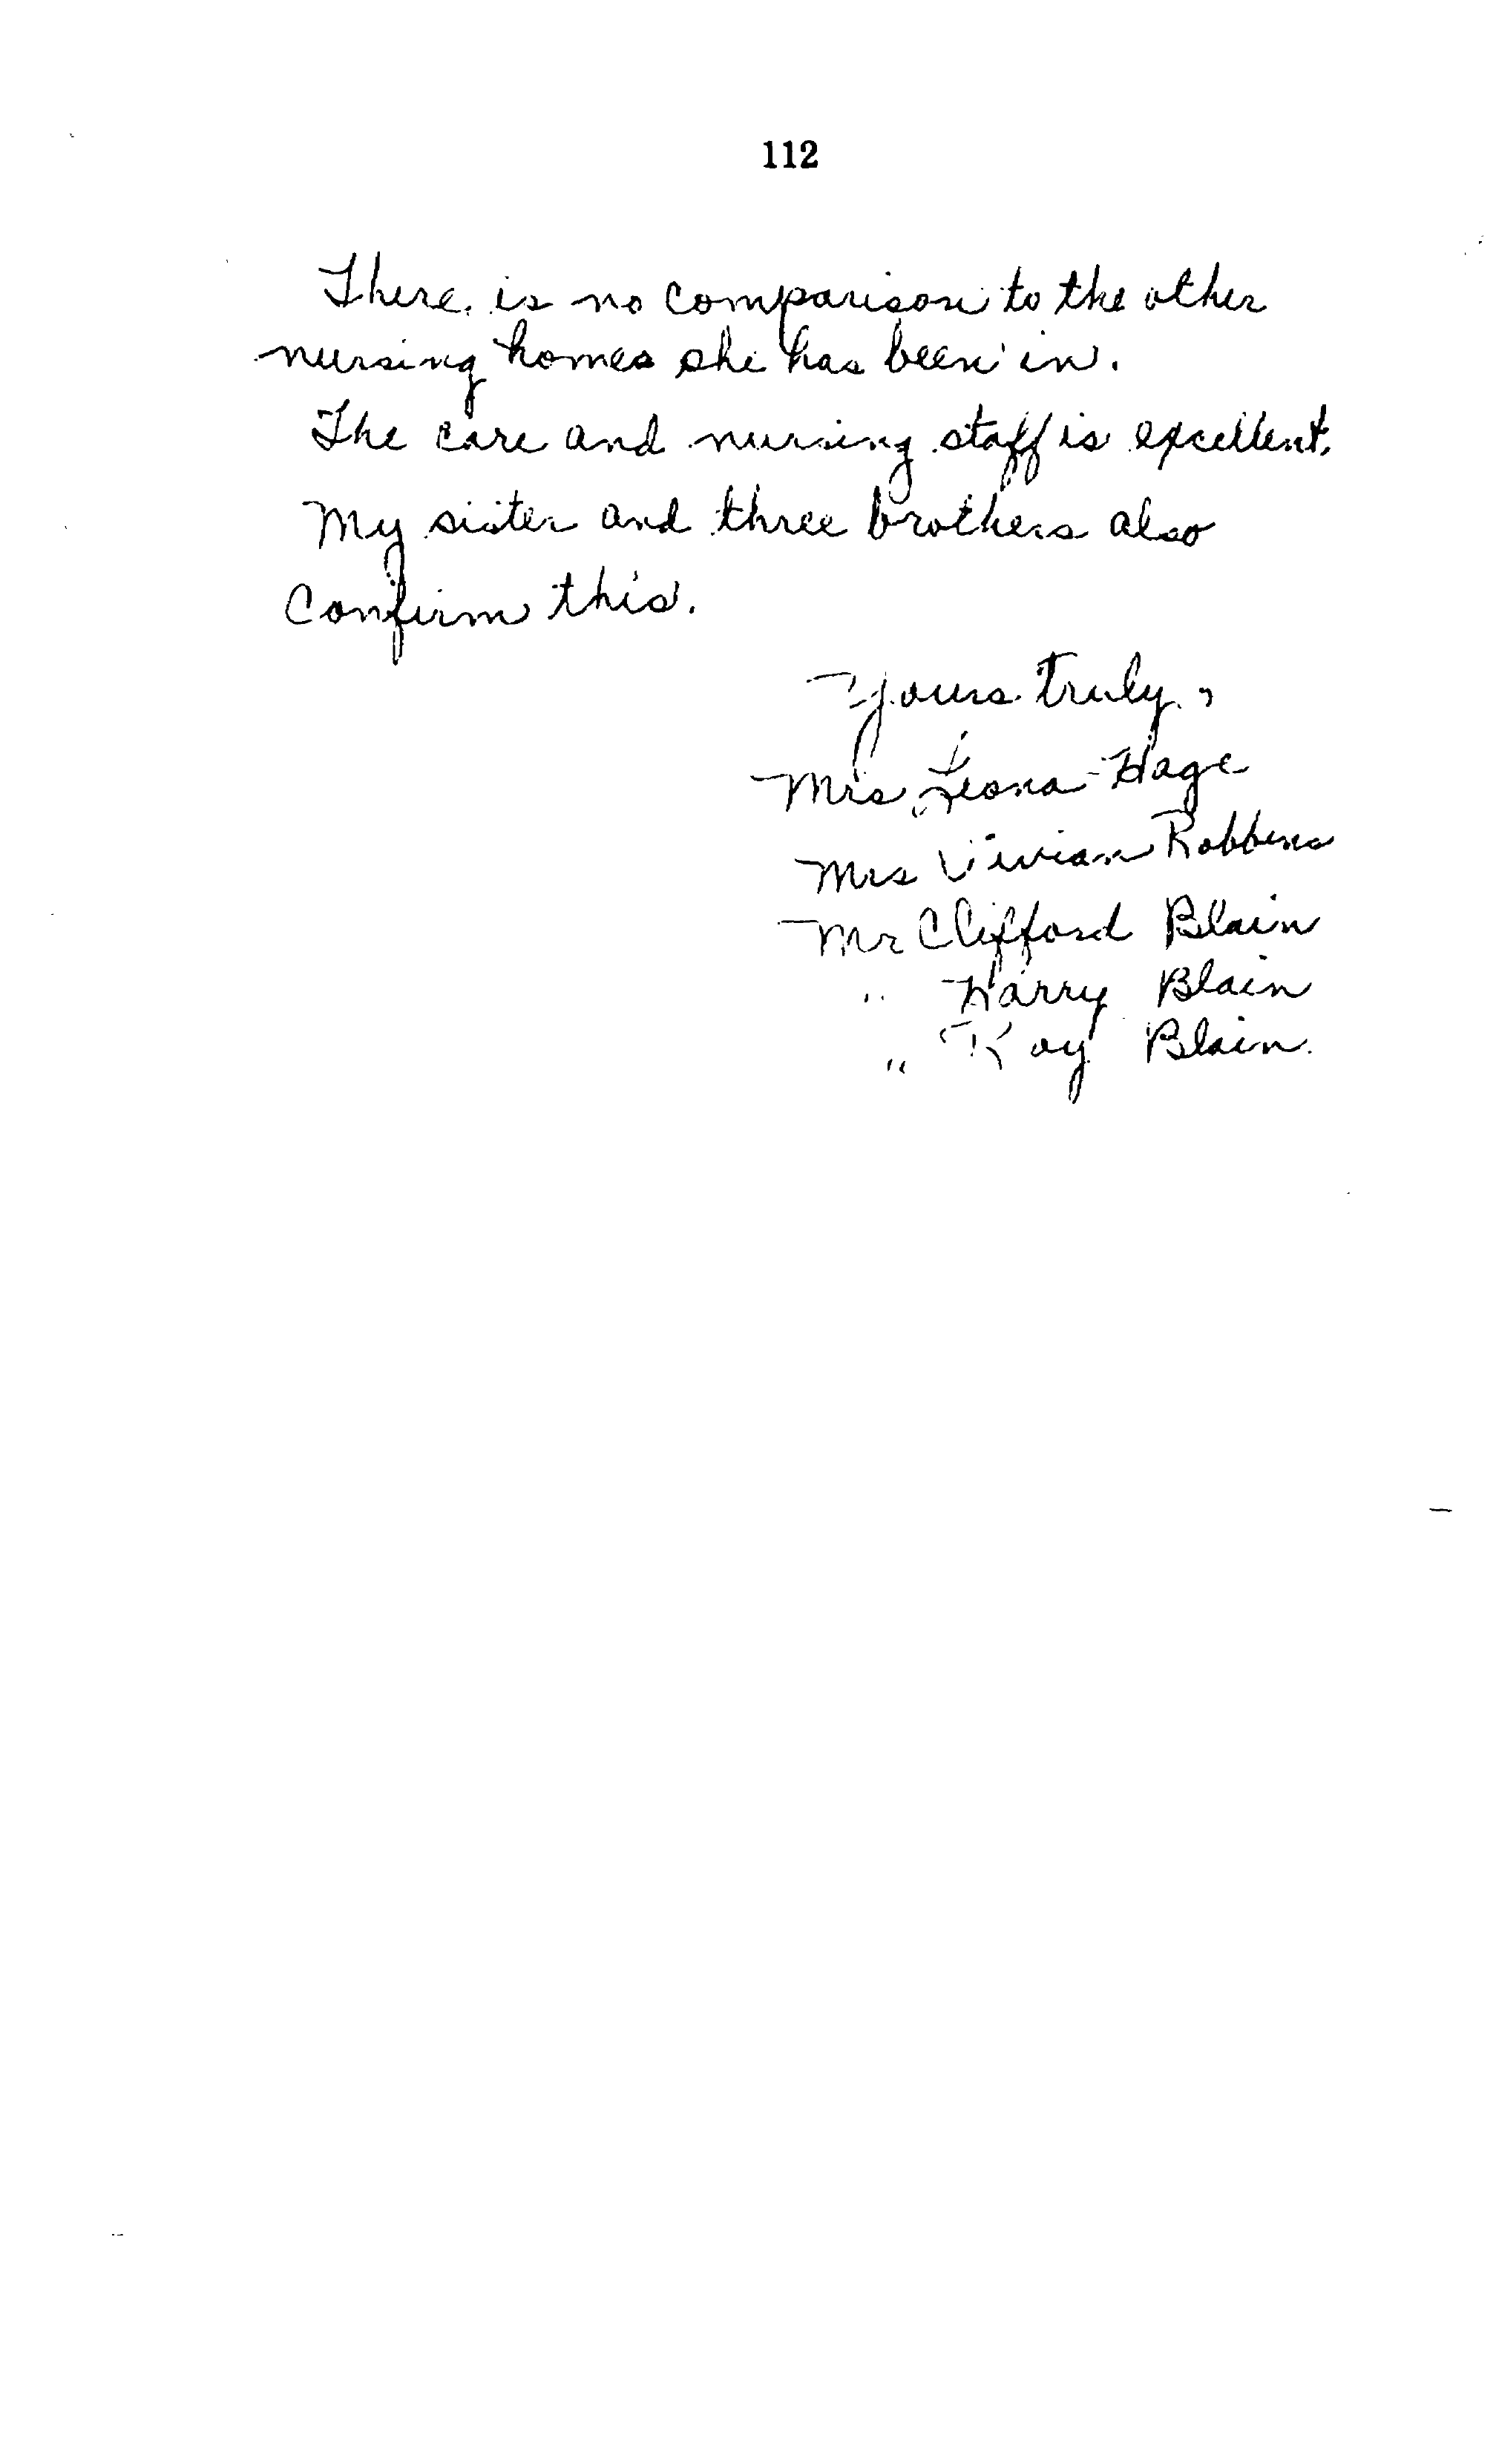 112
There is no comparison to the other
nursing homes she has been in.
The care and nursing staff is excellent.
My sister and three brothers also
Confirm this.
Yours truly,
Mrs. Leona Hage
Mrs Vivian Robbins
Mr Clifford Blain
" Harry Blain
" Roy Blain.